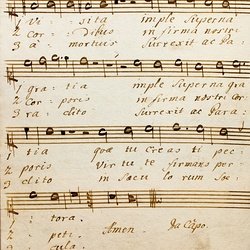 1 Vi sita imple Superna
2 Cor Dibus in firma nostri
3 a mortuis Surrexit ac Pa
1 gra tia imple Superna gra
2 Cor poris in firma nostri cor
3 ra clito Surrexit ac Para
1 tia quæ tu Creas ti pec
2 poris Vir tu te firmans per
3 clito in Sæcu lo rum Sæ
1 tora.
2 peti. Amen Da Capo.
3 cula.